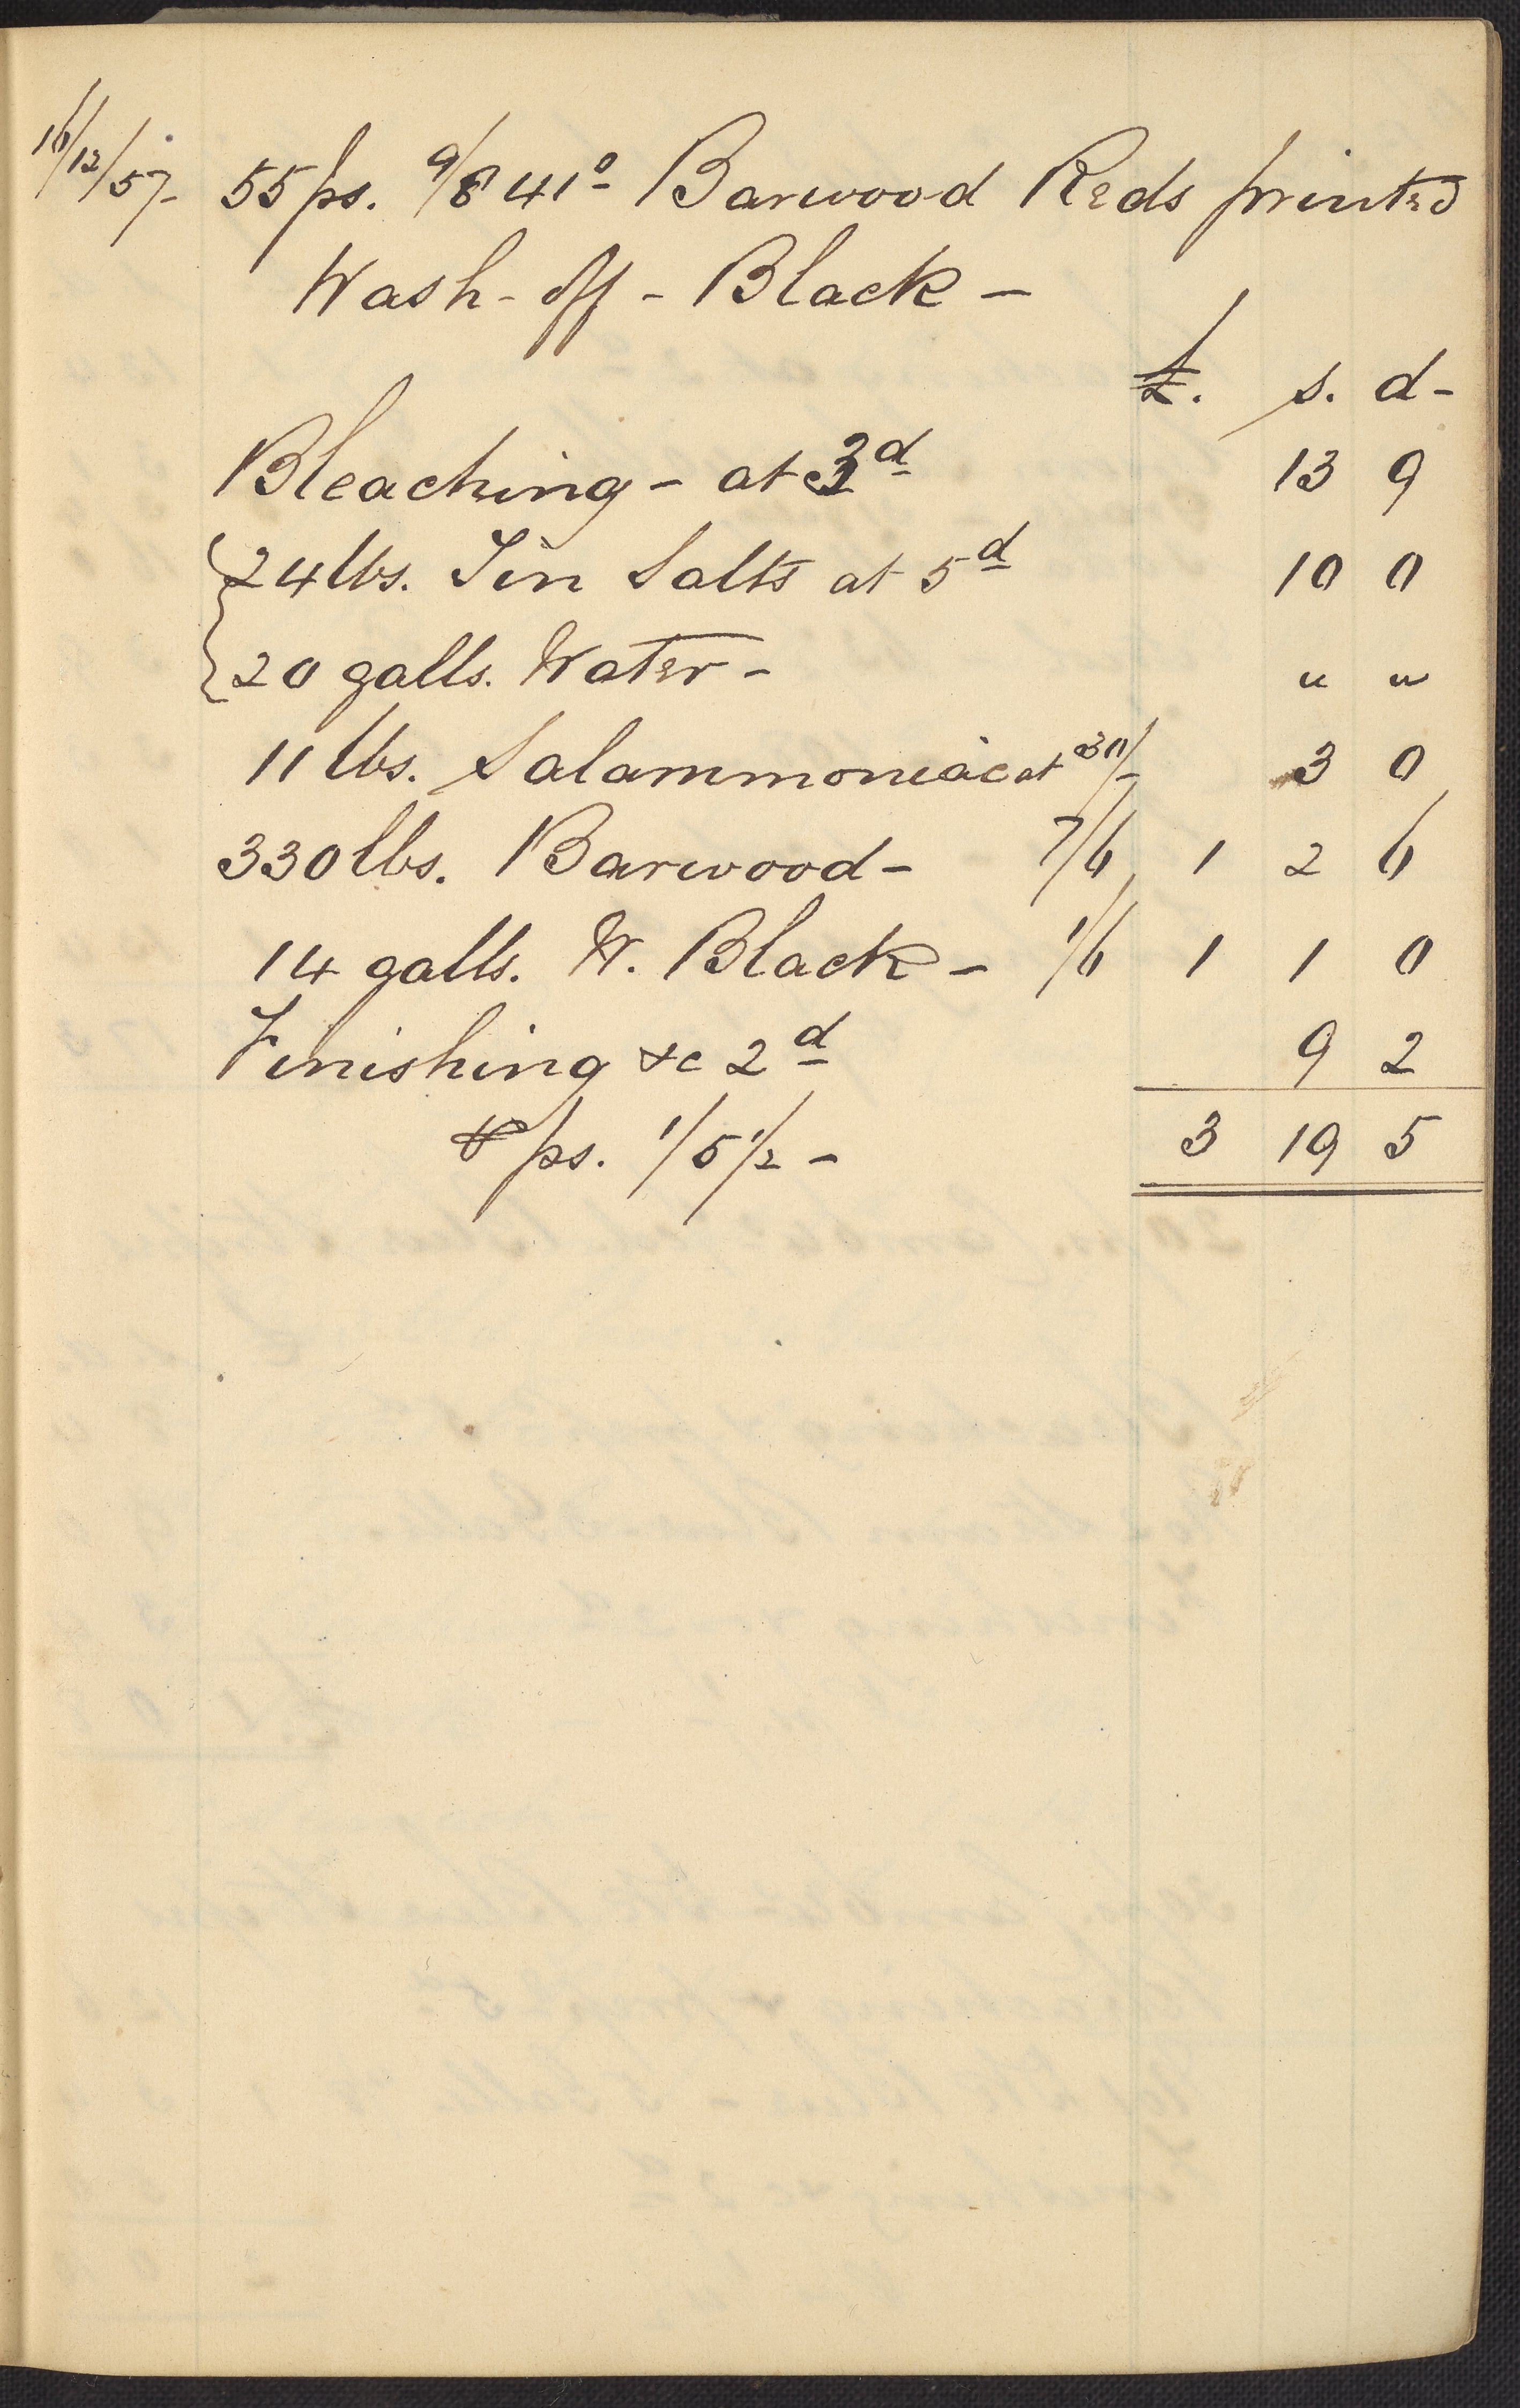 16/12/57- 55 ps. 9/8 41º Barwood Reds printed
Wash-off-Black-
£. s. d-
Bleaching - at 3d 13 9
24 lbs. Tin Salts at 5d 10 0
20 galls. Water - " "
11 lbs. Salammoniac at 30/- 3 0
330 lbs. Barwood - 7/6 1 2 6
14 galls. W. Black - 1/6 1 1 0
Finishing &c 2d 9 2
⅌ ps. 1/5 1/2 - 3 19 5